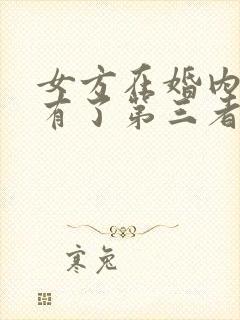 女方在婚内
有了第三者
寒兔